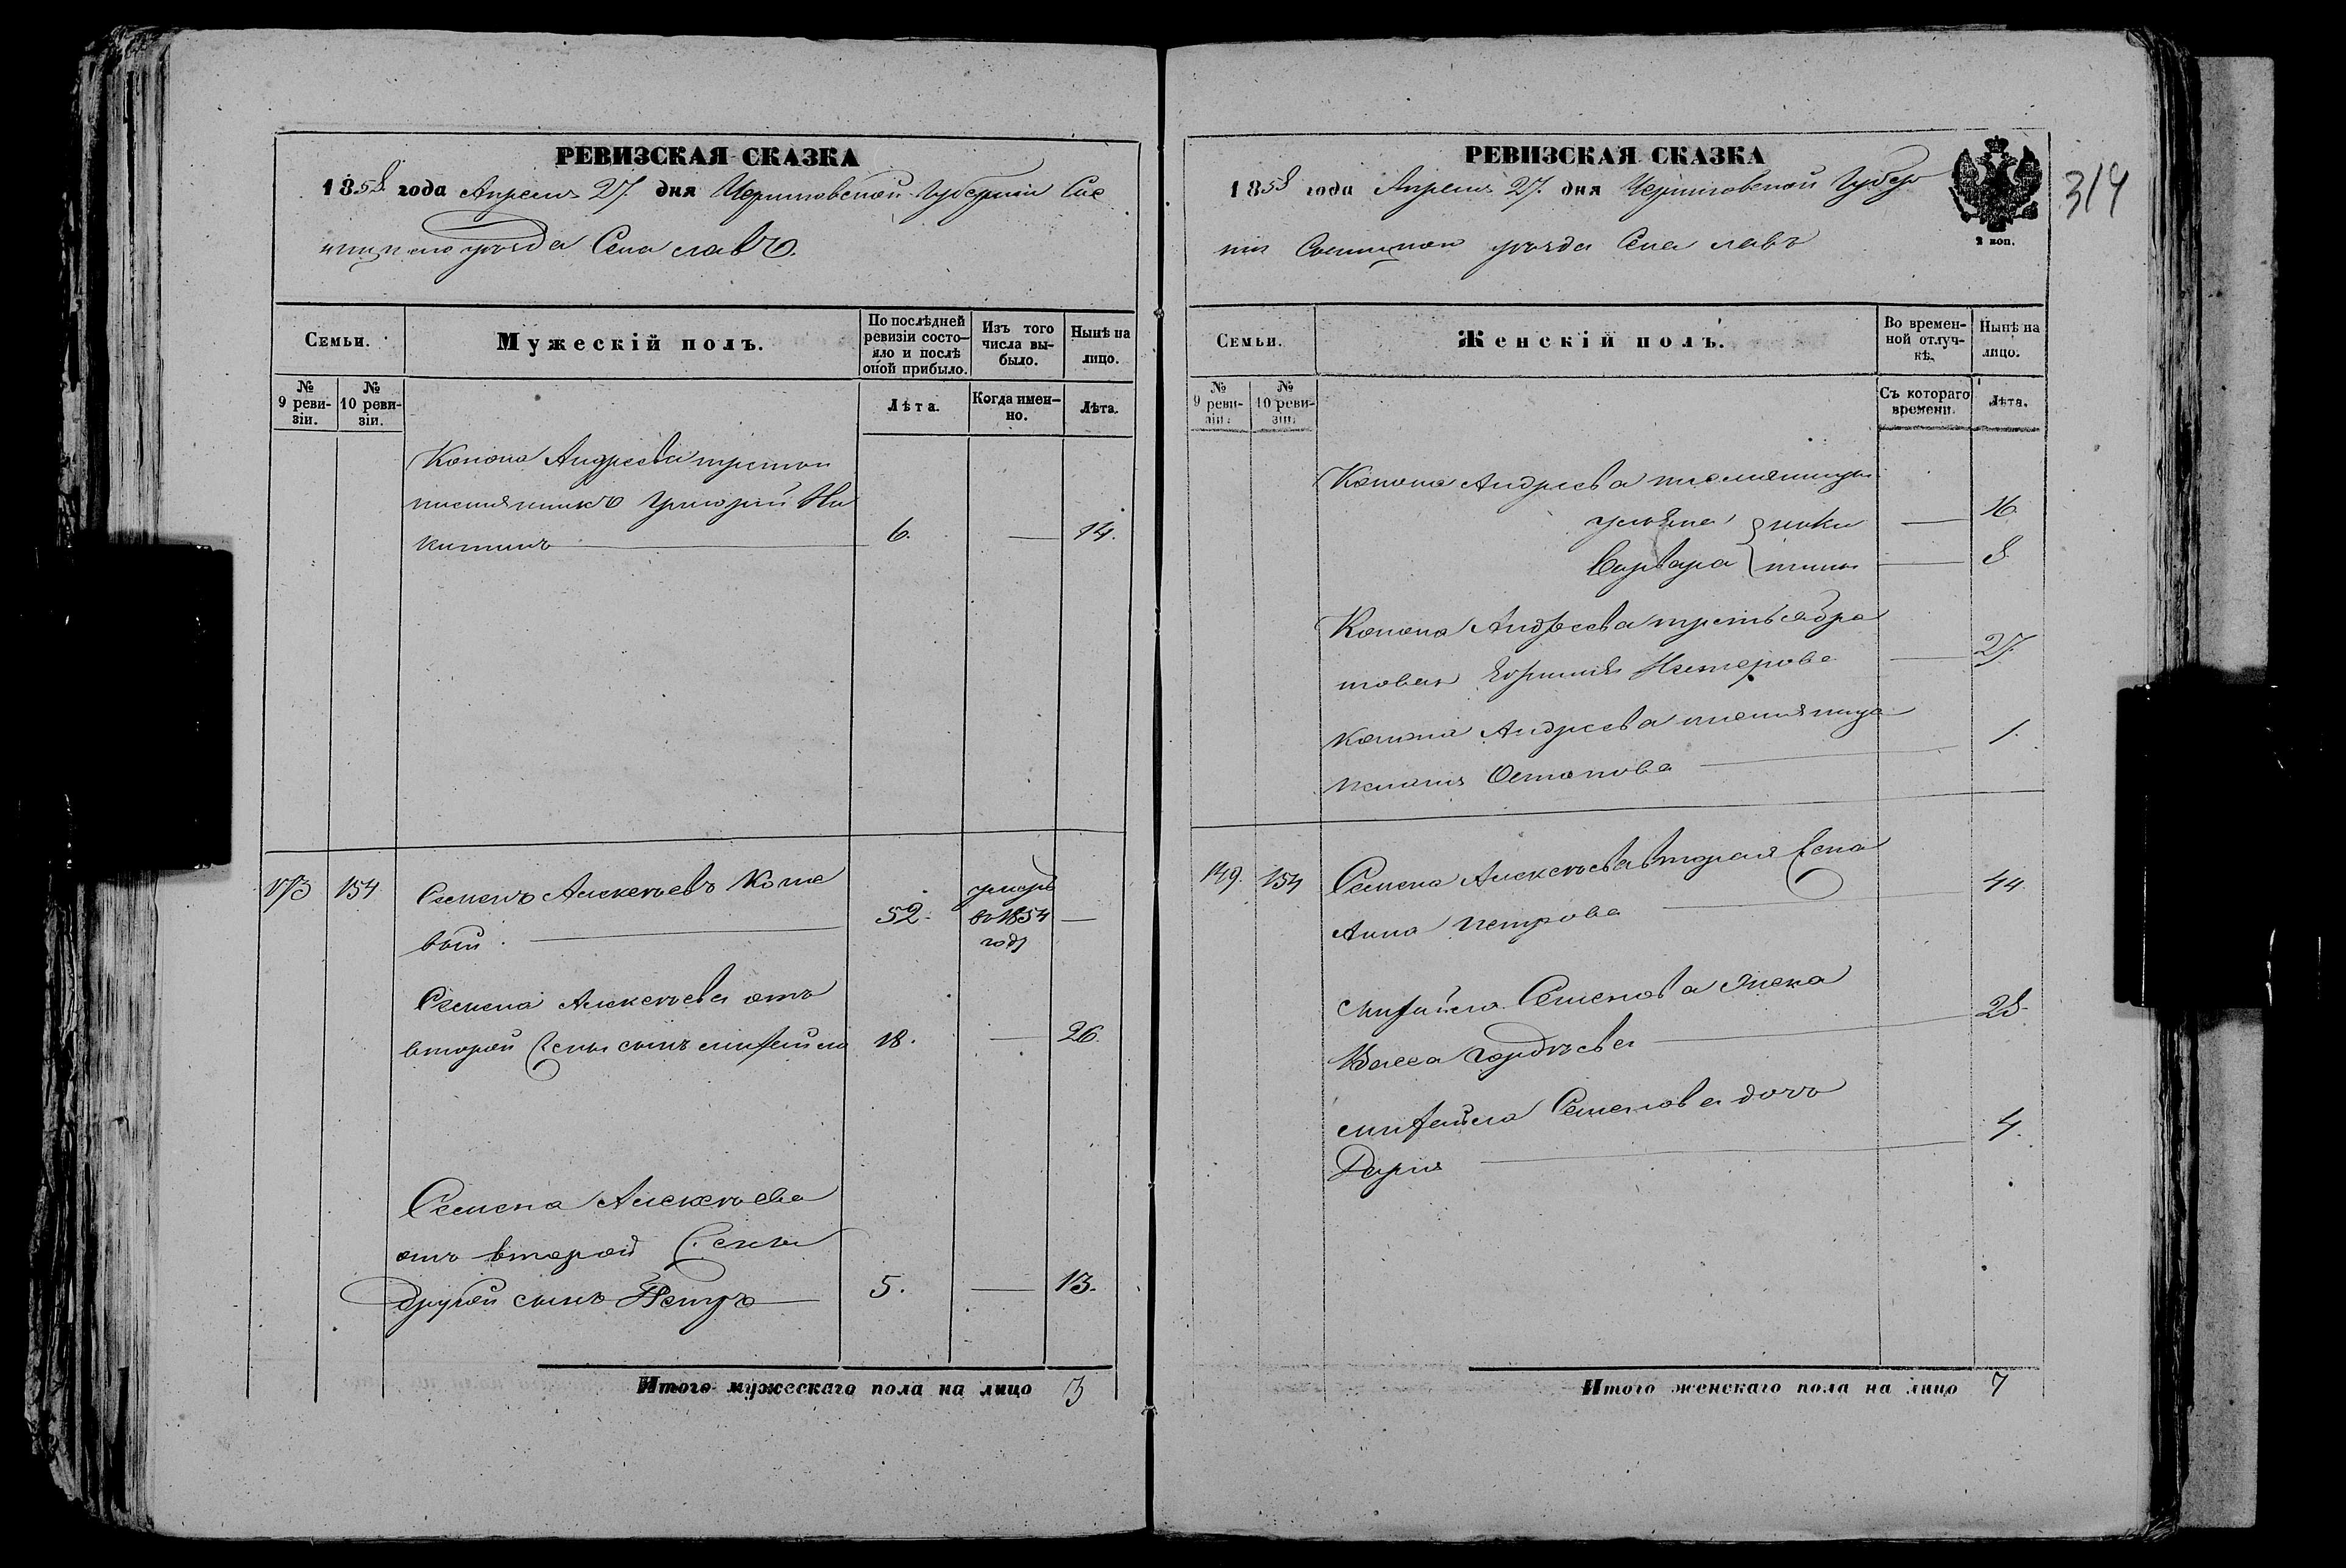 РЕВИЗСКАЯ СКАЗКА
1858 года Апреля 27. дня Черниговской Губернии Сос
ницкаго уезда Села
Семьи.
Мужескій полъ.
По послѣдней ревизіи состо-
яло и послѣ
оной прибыло.
Изъ того
числа вы-
было.
Нынѣ на
лицо.
№
9 реви-
зіи.
№
10 реви-
зіи.
Лѣта.
Когда имен-
но.
Лѣта.
Конона Андреева третій
племянникъ Григорій Ни
китинъ 6. — 14.
173 154 Семенъ Алексѣевъ Коше
вый. 52. умеръ
въ 1854
году —
Семена Алексѣева отъ
второй жены сынъ Михайло 18. — 26
Семена Алексѣева
отъ второй жены
другой сынъ Петръ 5. — 13.
Итого мужескаго пола на лицо 3
РЕВИЗСКАЯ СКАЗКА
1858 года Апреля 27. дня Черниговской Губер
нiи Сосницкаго уезда Села
2 коп.
314
Семьи.
Женскій полъ.
Во времен-
ной отлуч-
кѣ.
Нынѣ на
лицо.
№
9 реви-
зіи.
№
10 реви-
зіи.
Съ котораго
времени.
Лѣта.
Конона Андреева племянницы
Ульяна } ники — 16
Варвара } тины — 8
Конона Андреева третьего бра
Нестерова — 27.
Конона Андреева племянница
Остапова 1.
149. 154 Семена Алексѣева вторая жена
Анна Петрова 44
Михайла Семенова жена
Васса Гордѣева 28.
Михайла Семенова дочь
Дарья 4.
Итого женскаго пола на лицо 7